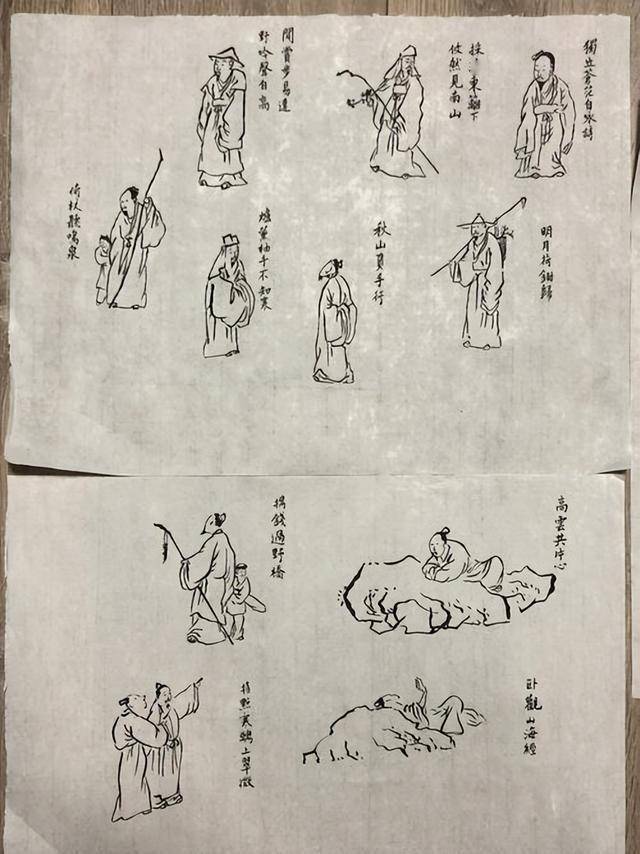 獨立蒼茫自咏詩
採東籬下
悠然見南山
閒賞步易遠
野吟聲自高
明月荷鋤歸
秋山負手行
爐薰袖手不知寒
倚杖聽鳴泉
高雲共片心
携錢過野橋
卧觀山海經
指點寒鴉上翠微